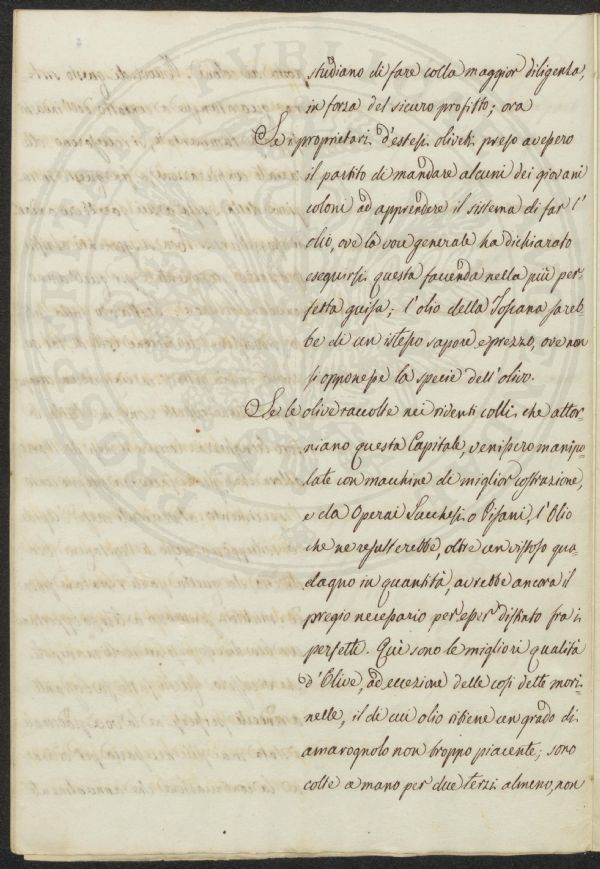 studiano di fare colla maggior diligenza,
in forza del sicuro profitto; ora
Se i proprietari d'estesi oliveti preso avessero
il partito di mandare alcuni dei giovani
coloni ad apprendere il sistema di far l'
olio, ove la voce generale ha dichiarato
eseguirsi questa faccenda nella più per=
fetta guisa; l'olio della Toscana sareb=
be di un istesso sapore e prezzo, ove non
si opponesse la specie dell'olivo.
Se le olive raccolte nei ridenti colli che attor=
niano questa Capitale, venissero manipo=
late con macchine di miglior costruzione,
e da Operai Lucchesi o Pisani, l'Olio
che ne resulterebbe, oltre un vistoso gua=
dagno in quantità, avrebbe ancora il
pregio necessario per esser distinto fra i
perfetti. Quì sono le migliori qualità
d'Olive, ad eccezione delle così dette mori=
nelle, il di cui olio ritiene un grado di
amarognolo non troppo piacente; sono
colte a mano per due terzi almeno, non